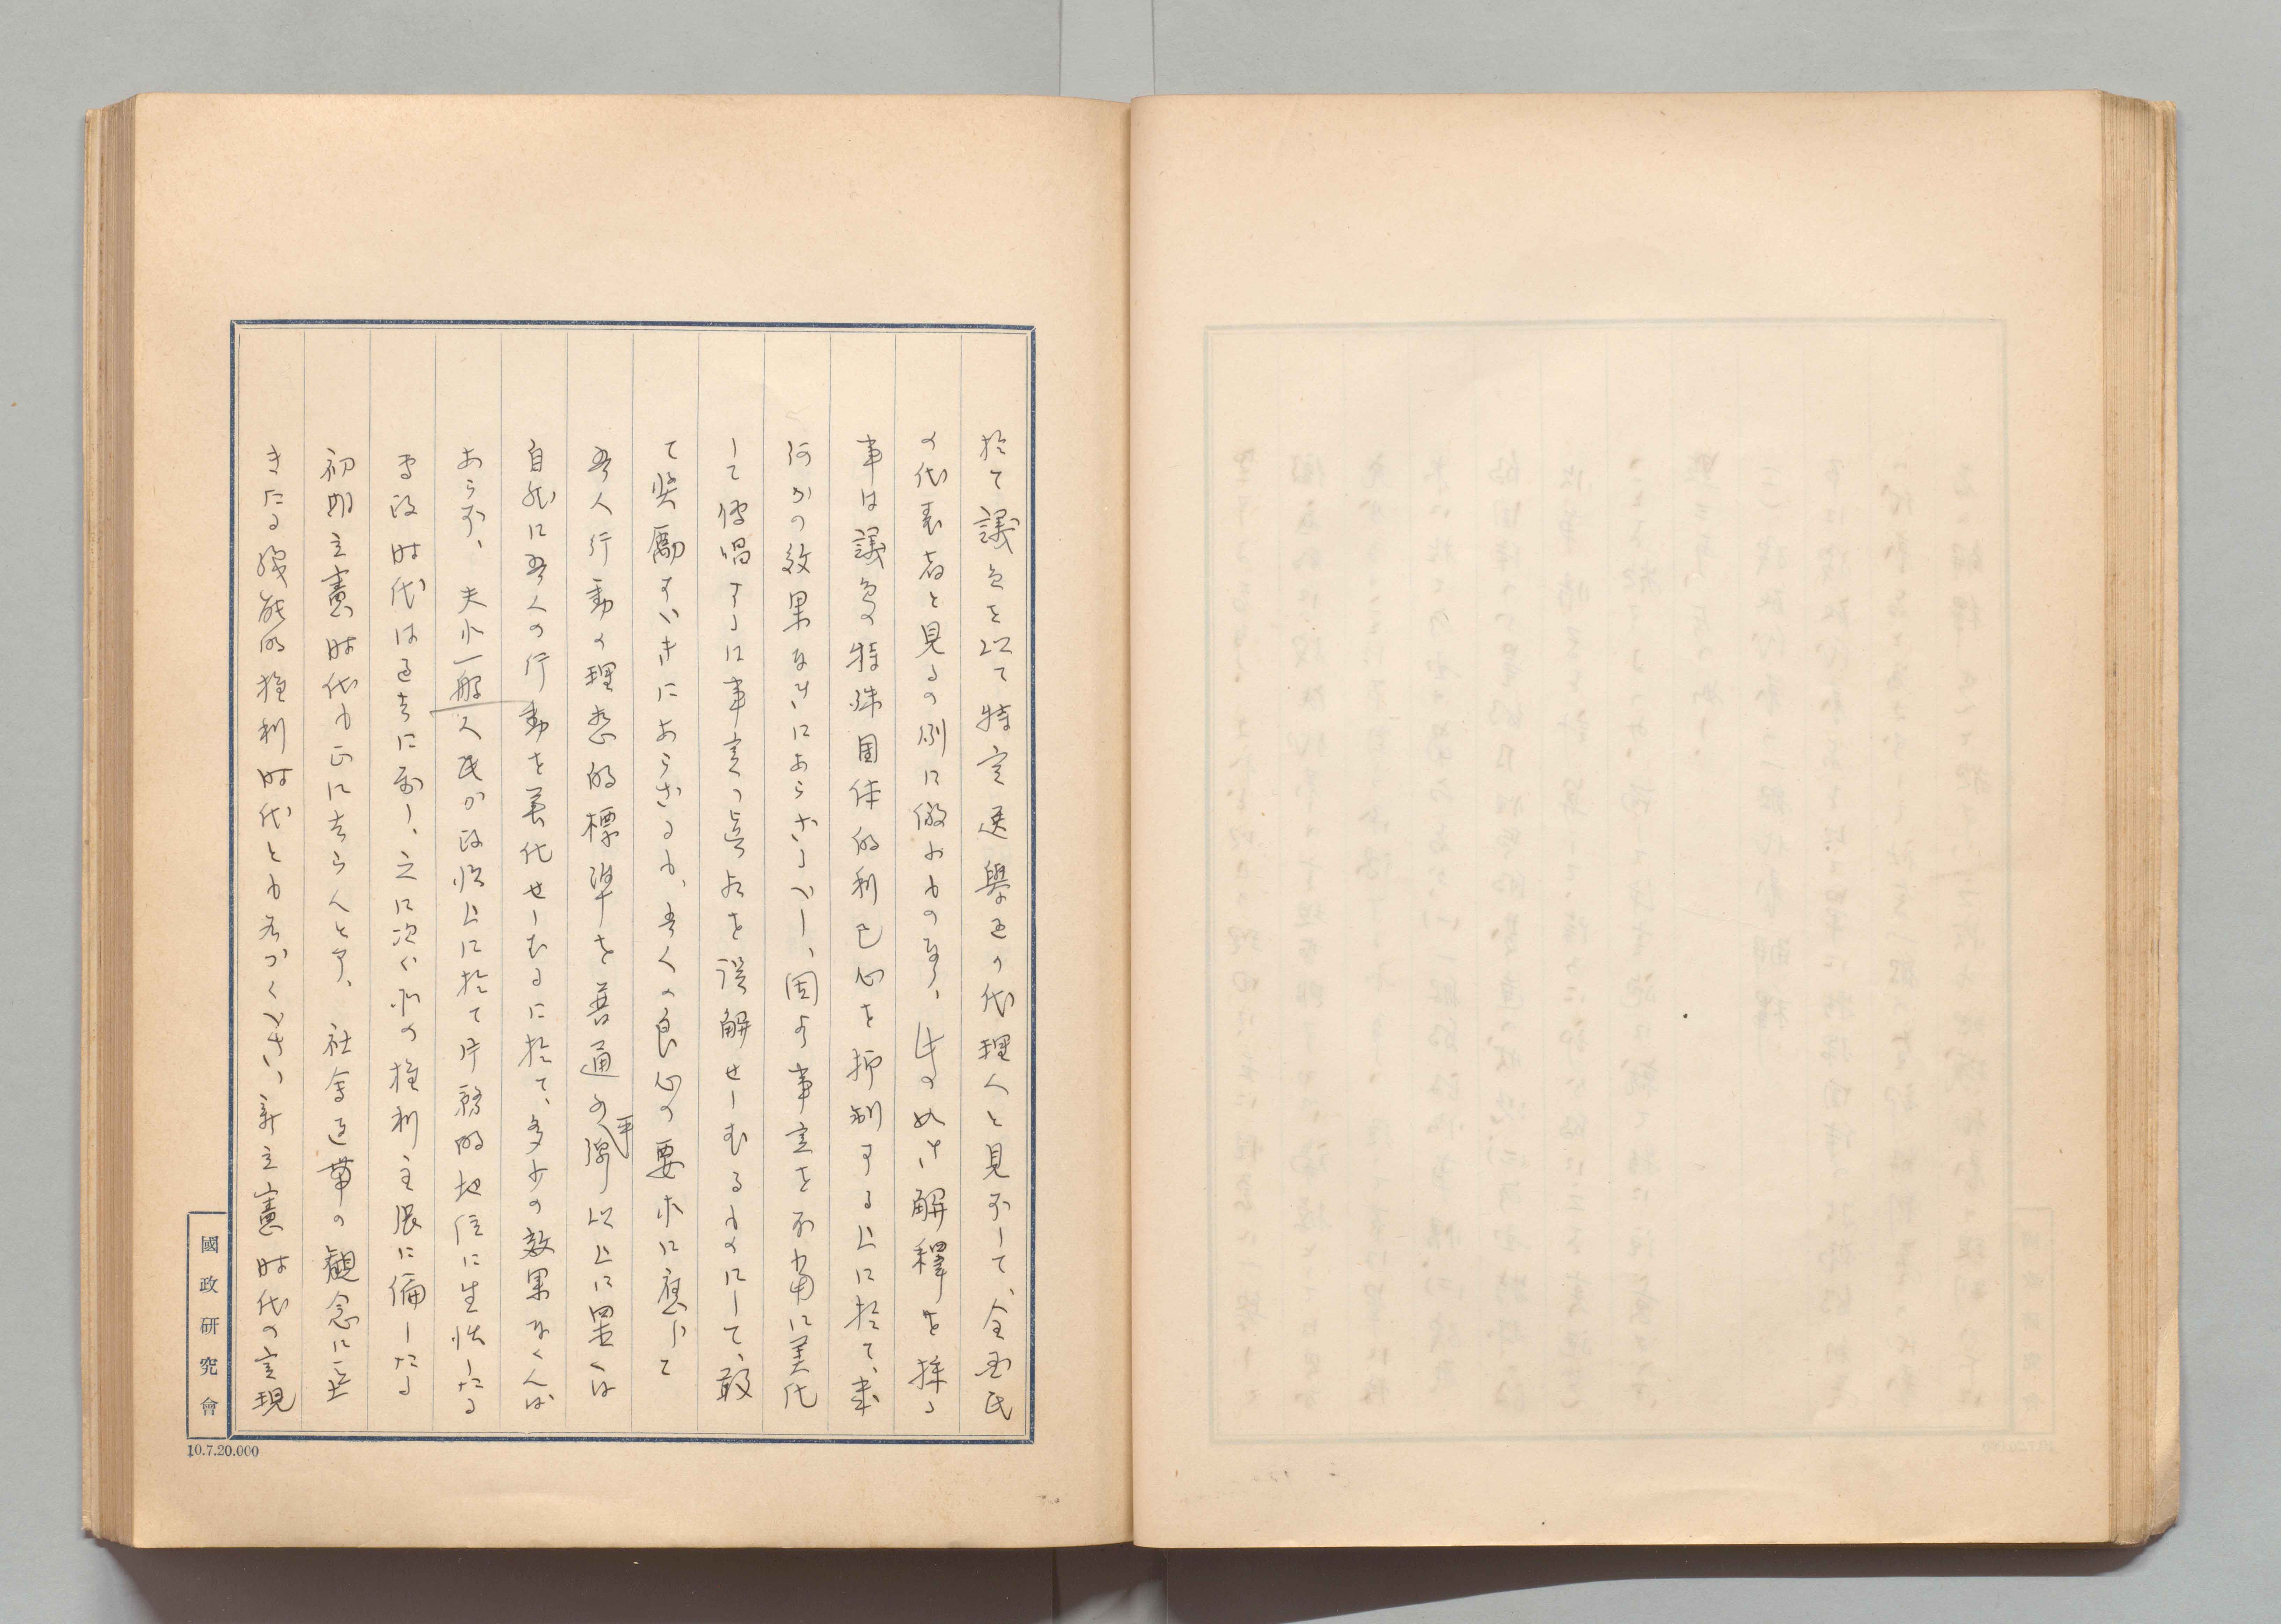 於て議員を以て特定選擧区の代理人と見ずして、全国民
の代表者と見るの例に倣おものなり、此の如き解釋を採る
事は議員の特殊団体的利己心を抑制する上に於て、
何かの效果なきにあらざるべし、固より事実を不當に美化
して唱するは事実の真相を誤解せしむるものにして、敢
て奨勵すべきにあらざるも、吾人の良心の要求に應じて
吾人行動の理想的標準を普通の水準以上に置くは
自然に吾人の行動を美化せしむるに於て、多少の效果なくんば
あらず、夫れ一般人民が政治上に於て片務的地位に生活したる
専政時代は過去に属し、之に次ぐ所の権利主張に偏したる
初期立憲時代も正に去らんとす、社會連帯の観念に立
きたる職能的権利時代とも名づくべき、新立憲時代の実現
國政研究會
10.7.20.000